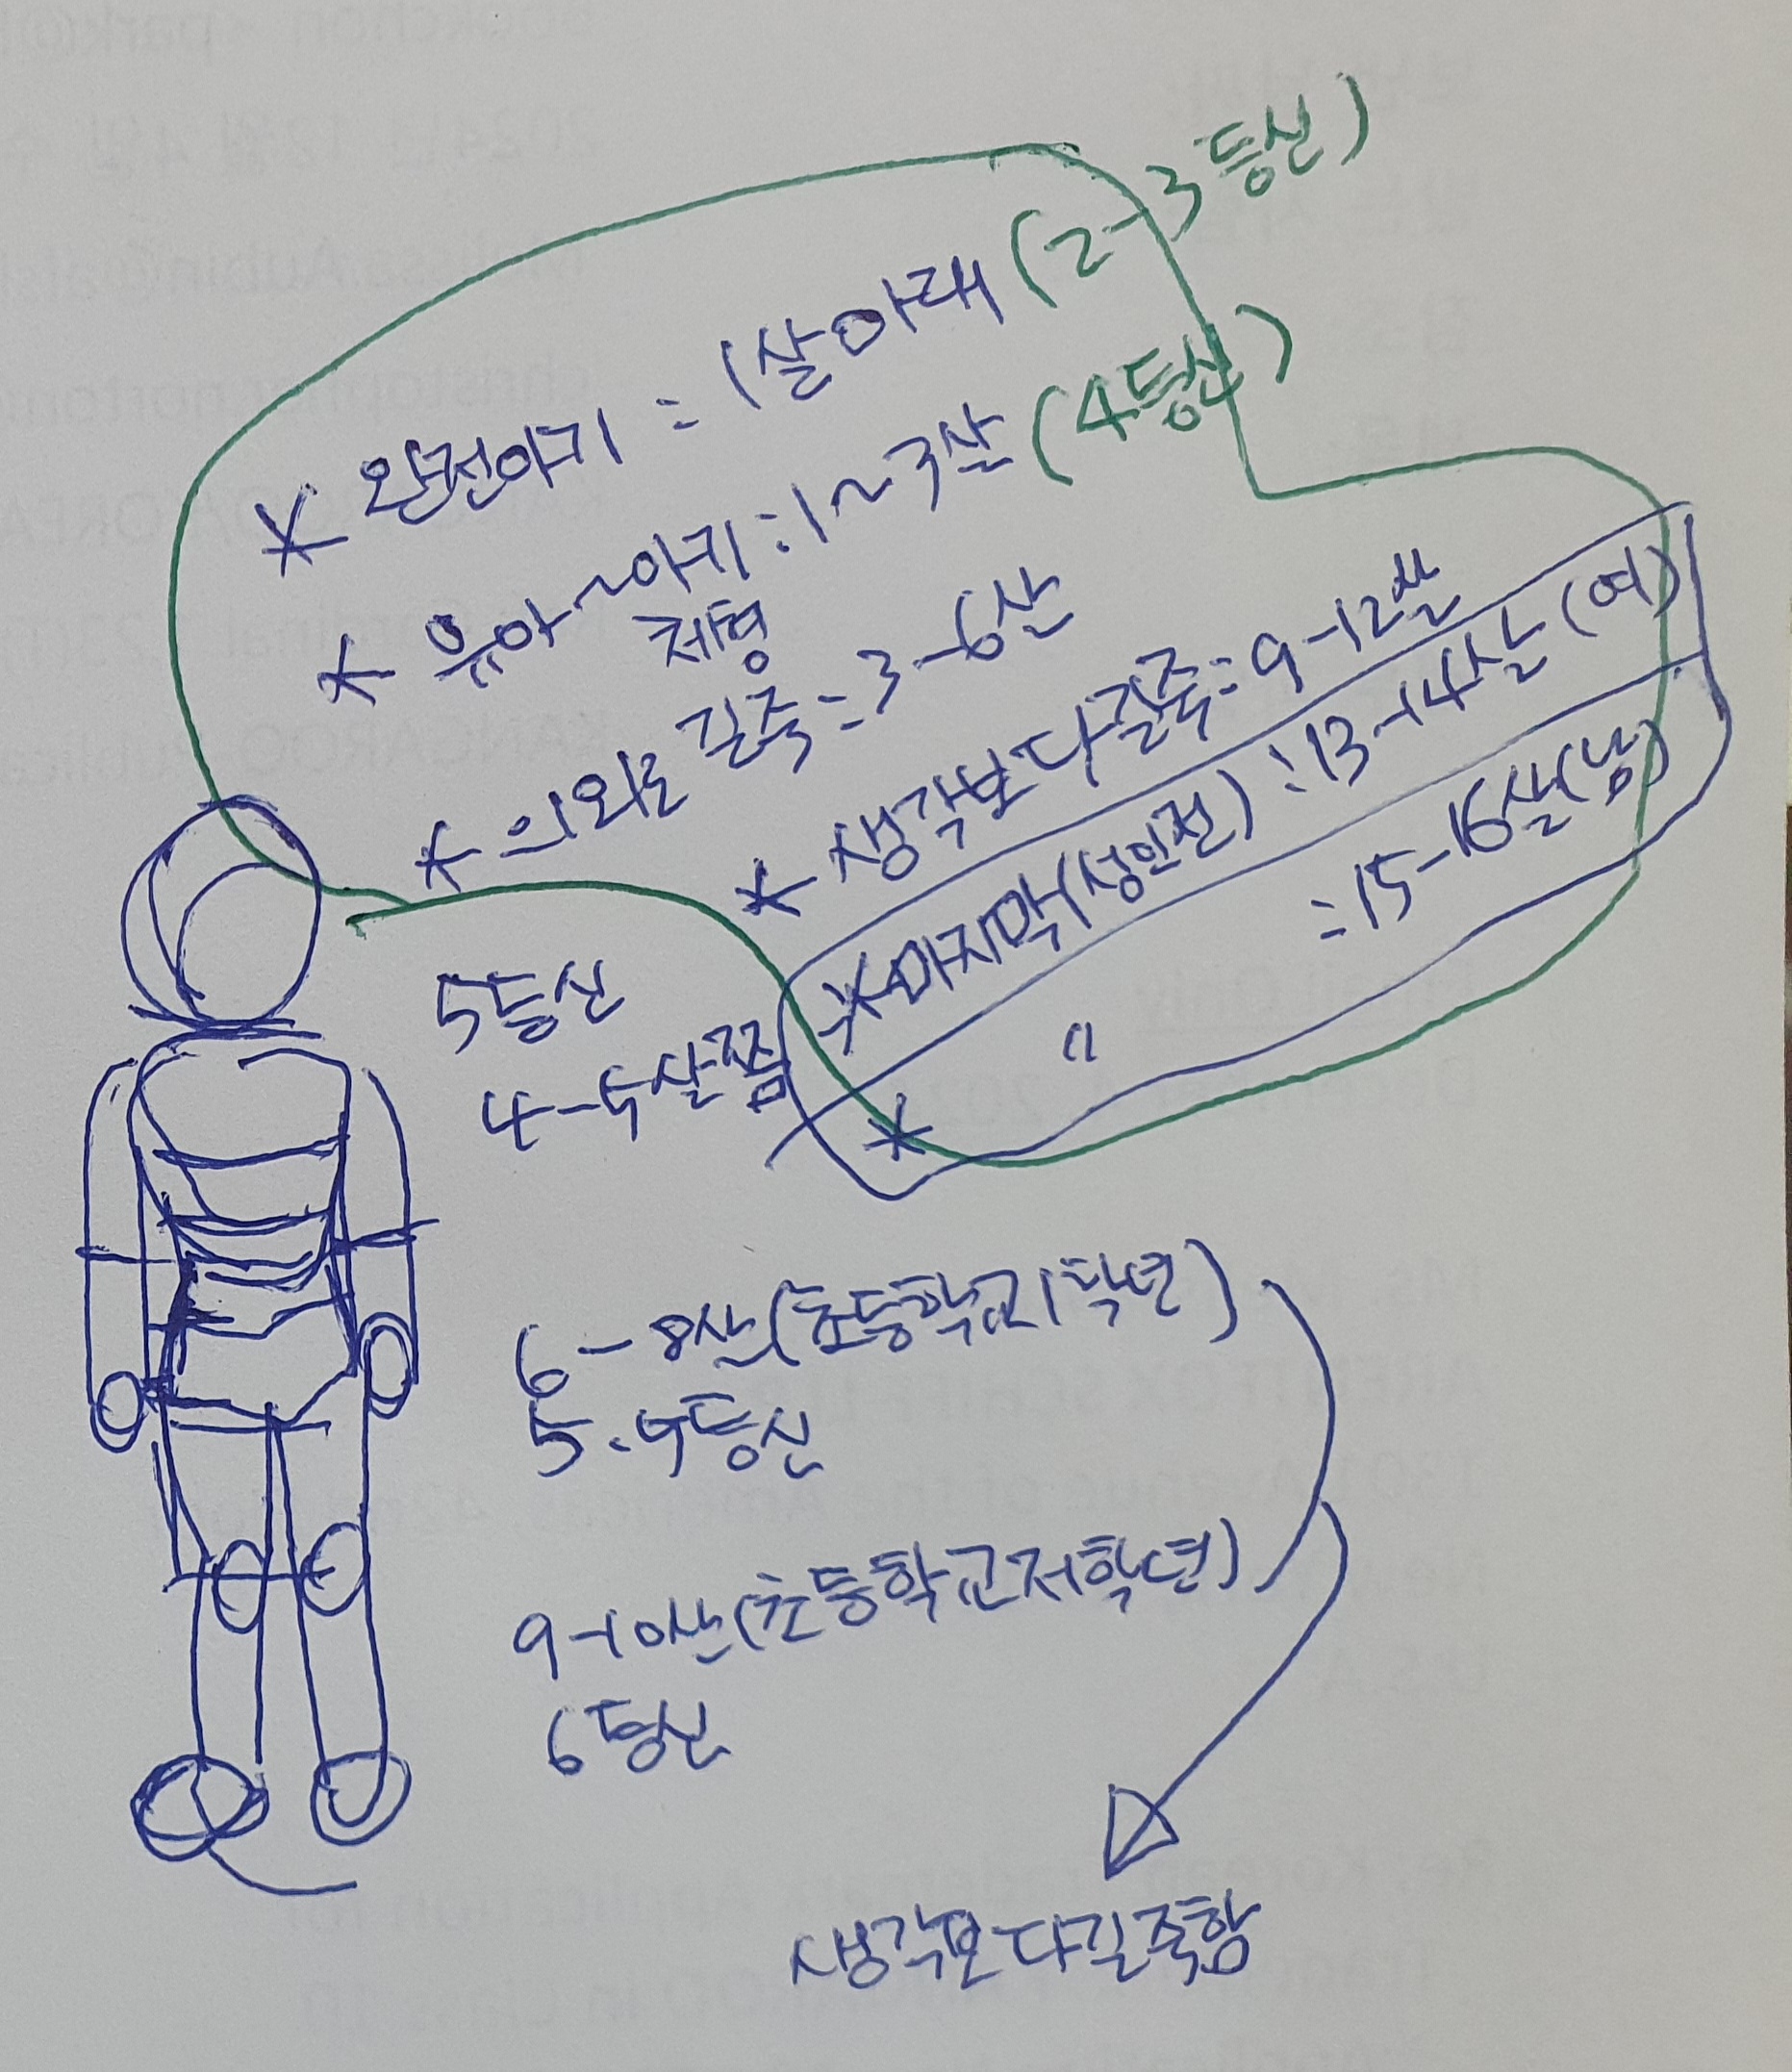 * 완전아기 : 1살아래 (2-3등신)
* 유아~아기 : 1~3살 (4등신)
체형
* 의외로 길쭉 : 3-6살
* 생각보다길쭉 : 9-12살
* 마지막(성인전) : 13-14살 (여)
* 〃 : 15-16살(남)
5등신
4-5살쯤
6-8살(초등학교1학년)
5.5등신
9-10살(초등학교저학년)
6등신
생각보다길쭉함